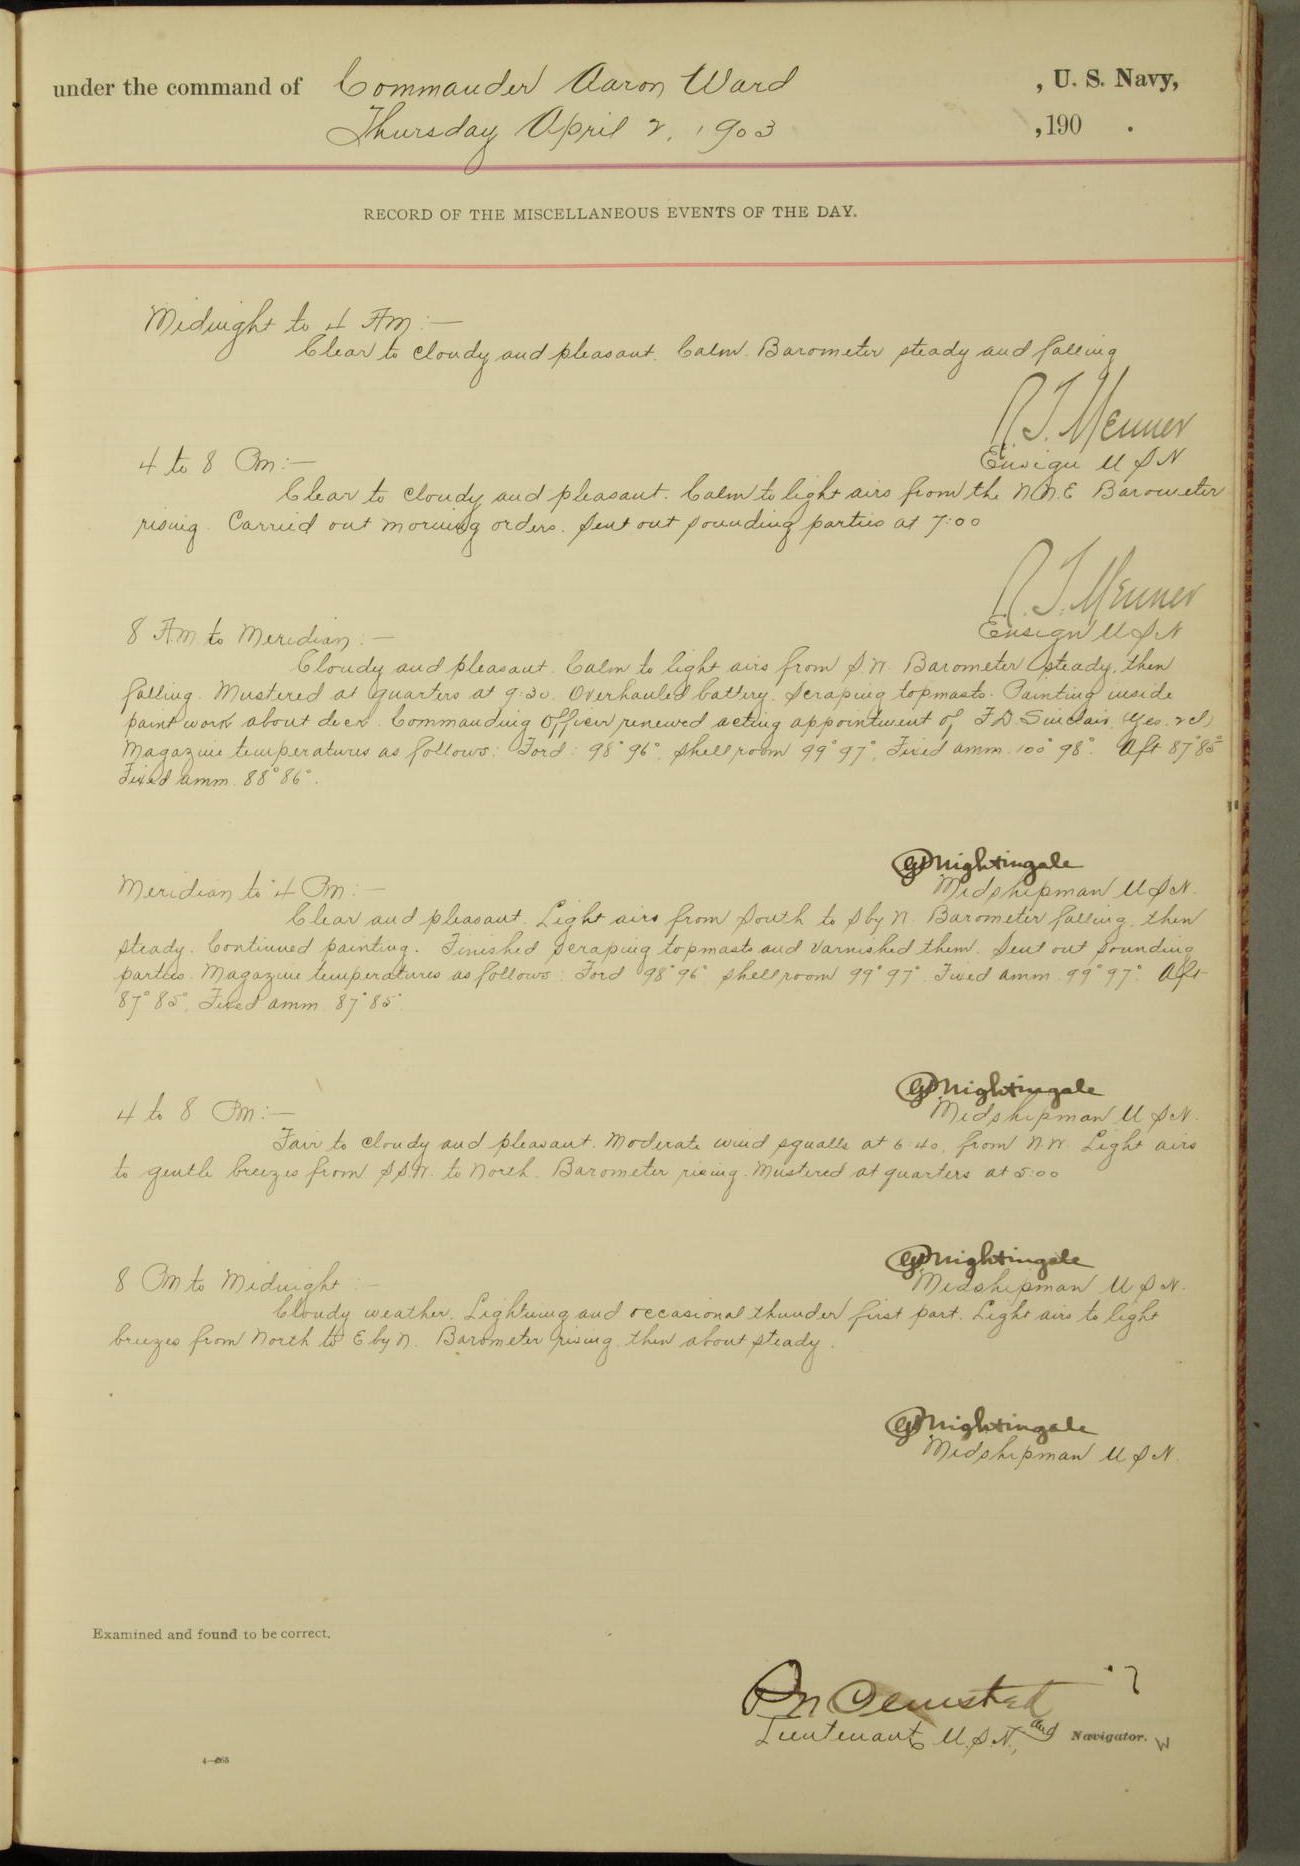 under the command of Commander Aaron Ward , U. S. Navy,
Thursday April 2, 1903 , 190 .
RECORD OF THE MISCELLANEOUS EVENTS OF THE DAY.
Midnight to 4 AM:—
Clear to cloudy and pleasant. Calm. Barometer steady and falling
R. T. Menner
Ensign U S N
4 to 8 Pm:—
Clear to cloudy and pleasant. Calm to light airs from the N.N.E Barometer
rising. Carried out morning orders. Sent out sounding parties at 7:00
R. T. Menner
Ensign U S N
8 A.M. to Meridian:—
Cloudy and pleasant. Calm to light airs from S.W. Barometer steady, then
falling. Mustered at quarters at 9:30. Overhauled battery. Scraping topmasts. Painting inside
paint work about deck. Commanding Officer renewed acting appointment of F. D. Sinclair (Yeo. 2cl)
Magazine temperatures as follows: Ford: 98° 96°, Shell room 99° 97°, Fixed amm. 100° 98°. Aft 87° 85°
Fixed amm. 88° 86°.
Nightingale
Midshipman U S N.
Meridian to 4 Pm:—
Clear and pleasant. Light airs from South to S by W. Barometer falling, then
steady. Continued painting. Finished scraping topmasts and varnished them. Sent out sounding
parties. Magazine temperatures as follows: Ford 98° 96° Shell room 99° 97°. Fixed amm. 99° 97°. Aft
87° 85°, Fixed amm. 87° 85°.
Nightingale
Midshipman U S N.
4 to 8 Pm:—
Fair to cloudy and pleasant. Moderate wind squalls at 6:40, from N.W. Light airs
to gentle breezes from S.S.W. to North. Barometer rising. Mustered at quarters at 5:00
Nightingale
Midshipman U S N.
8 Pm to Midnight:—
Cloudy weather. Lightning and occasional thunder first part. Light airs to light
breezes from North to E by N. Barometer rising, then about steady.
Nightingale
Midshipman U S N.
Examined and found to be correct.
Olmsted
Lieutenant U.S.N., and Navigator.